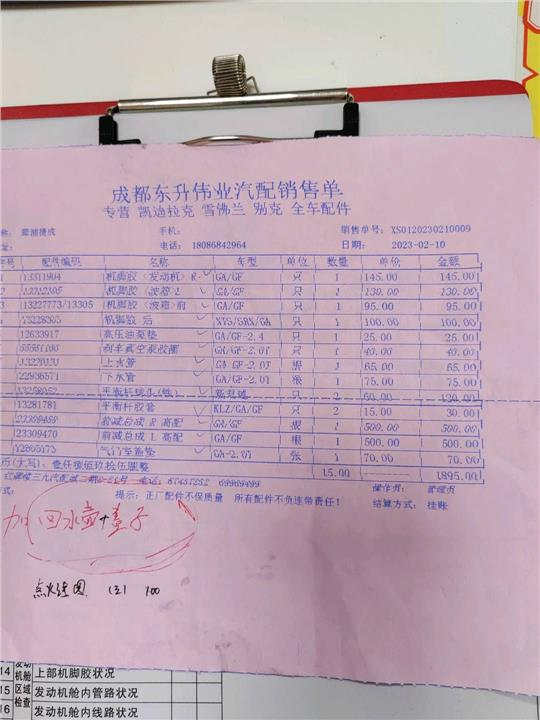 成都东升伟业汽配销售单
专营 凯迪拉克 雪佛兰 别克 全车配件
手机: 销售单号: XS0120230210009
电话: 18086842964 日期: 2023-02-10
配件编码 名称 车型 单位 数量 单价 金额
13311904 机脚胶(发动机)R GA/GF 只 1 145.00 145.00
机脚胶(波箱)L GA/GF 只 1 130.00 130.00
3 13227773/13305 机脚胶(波箱)前 GA/GF 只 1 95.00 95.00
机脚胶 后 XTS/SRX/GA 只 1 100.00 100.00
12633917 高压油泵垫 GA/GF-2.4 只 1 25.00 25.00
刹车真空泵胶圈 GA/GF-2.0T 只 1 40.00 40.00
上水管 GA/GF-2.0T 根 1 65.00 65.00
22936571 下水管 GA/GF-2.0T 根 1 75.00 75.00
只 2 60.00 120.00
13281781 平衡杆胶套 KLZ/GA/GF 只 2 15.00 30.00
前减总成 R 高配 GA/GF 根 1 500.00 500.00
23309470 前减总成 L 高配 GA/GF 根 1 500.00 500.00
气门室盖垫 GA-2.0T 张 1 70.00 70.00
15.00 1895.00
操作员: 管理员
提示: 正厂配件不保质量 所有配件不负连带责任! 结算方式: 挂账
加 回水壶+盖子
100
14 上部机脚胶状况
15 发动机舱内管路状况
16 发动机舱内线路状况
发动机舱区域检查